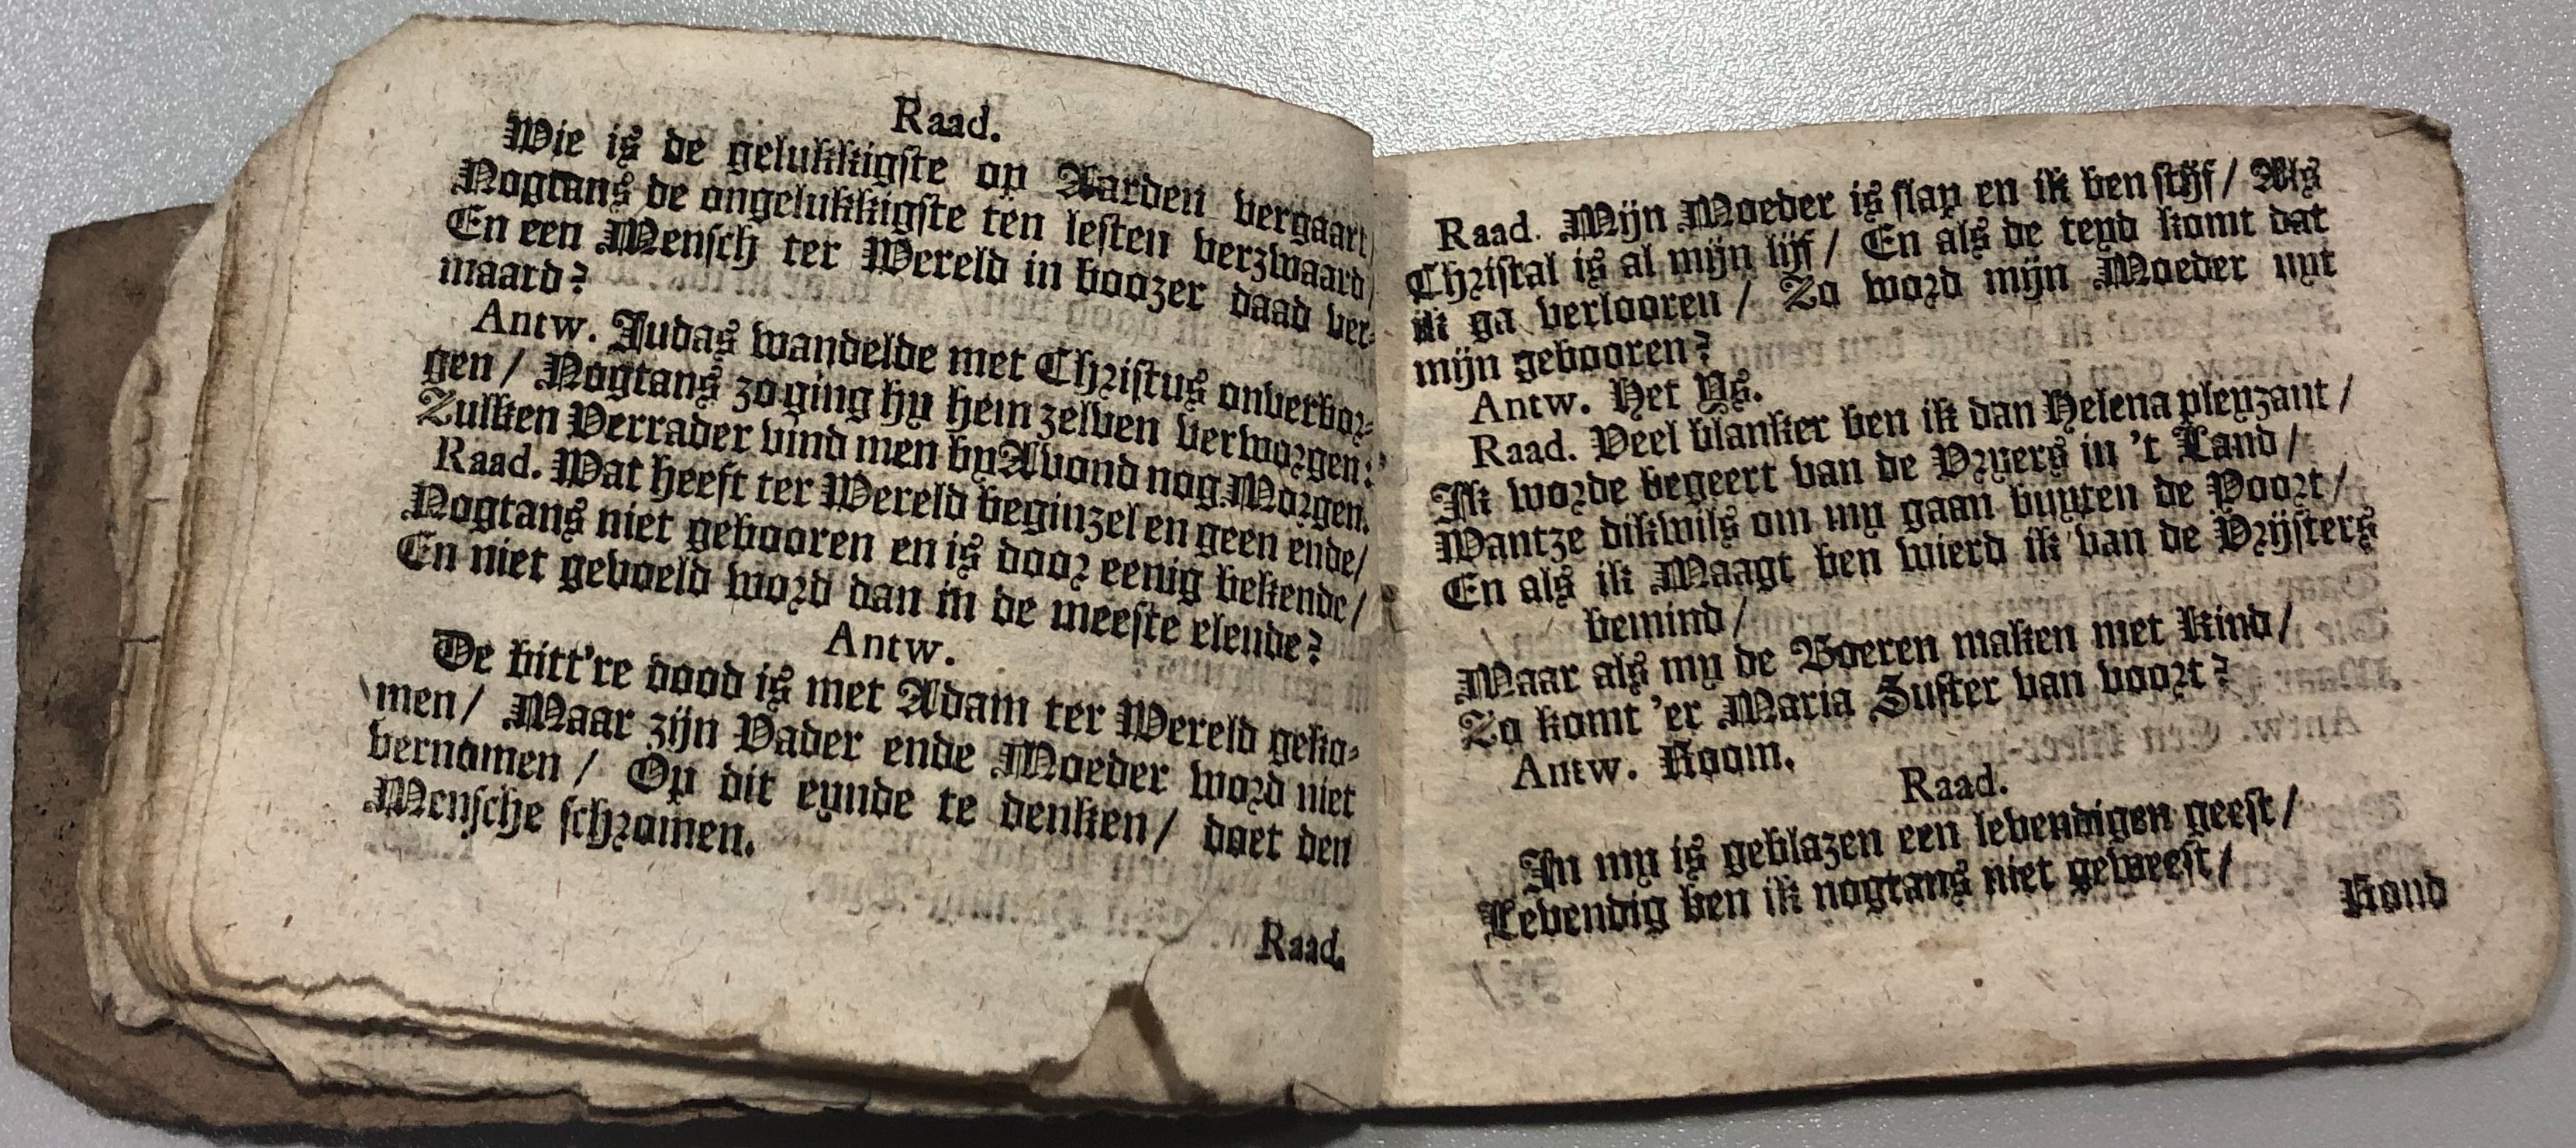 Raad.
Wie is de gelukkigste op Aarden vergaart/
Nogtans de ongelukkigste ten lesten verzwaard/
En een Mensch ter Wereld in boozer daad ver-
maard?
Antw. Judas wandelde met Christus onverbor-
gen/ Nogtans zo ging hy hem zelven verworgen:
Zulken Verrader vind men by Avond nog Morgen.
Raad. Wat heeft ter Wereld beginzel en geen ende/
Nogtans niet gebooren en is door eenig bekende/
En niet gevoeld word dan in de meeste elende?
Antw.
De bitt're dood is met Adam ter Wereld geko-
men/ Maar zijn Vader ende Moeder word niet
vernomen/ Op dit eynde te denken/ doet den
Mensche schromen.
Raad.
Raad. Mijn Moeder is slap en ik ben stijf/ Als
Christal is al mijn lijf/ En als de teyd komt dat
ik ga verlooren/ Zo word mijn Moeder uyt
mijn gebooren?
Antw. Het Ys.
Raad. Veel blanker ben ik dan Helena pleyzant/
Ik worde begeert van de Vryers in 't Land/
Wantze dikwils om my gaan buyten de Poort/
En als ik Maagt ben wierd ik van de Vrijsters
bemind/
Maar als my de Boeren maken met Kind/
Zo komt 'er Maria Suster van voort?
Antw. Room.
Raad.
In my is geblazen een levendigen geest/
Levendig ben ik nogtans niet geweest/
Rond